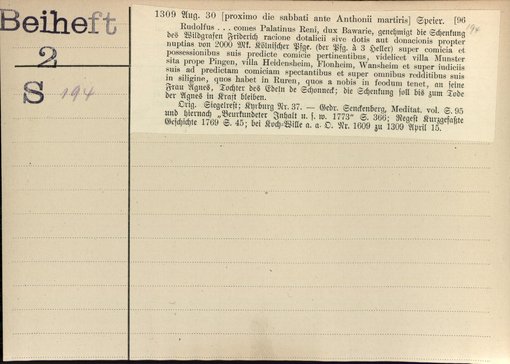 Beiheft
2
S 194
1309 Aug. 30 [proximo die sabbati ante Anthonii martiris] Speier. [96
194
Rudolfus . . . comes Palatinus Reni, dux Bawarie, genehmigt die Schenkung
des Wildgrafen Friderich racione dotalicii sive dotis aut donacionis propter
nuptias von 2000 Mk. Kölnischer Pfge. (der Pfg. à 3 Heller) super comicia et
possessionibus suis predicte comicie pertinentibus, videlicet villa Munster
sita prope Pingen, villa Heidensheim, Flonheim, Wansheim et super iudiciis
suis ad predictam comiciam spectantibus et super omnibus redditibus suis
in siligine, quos habet in Ruren, quos a nobis in feodum tenet, an seine
Frau Agnes, Tochter des Edeln de Schonneck; die Schenkung soll bis zum Tode
der Agnes in Kraft bleiben.
Orig. Siegelrest; Kyrburg Nr. 37. — Gedr. Senckenberg, Meditat. vol. S. 95
und hiernach „Beurkundeter Inhalt u. s. w. 1773“ S. 366; Regest Kurzgefaßte
Geschichte 1769 S. 45; bei Koch-Wille a. a. O. Nr. 1609 zu 1309 April 15.